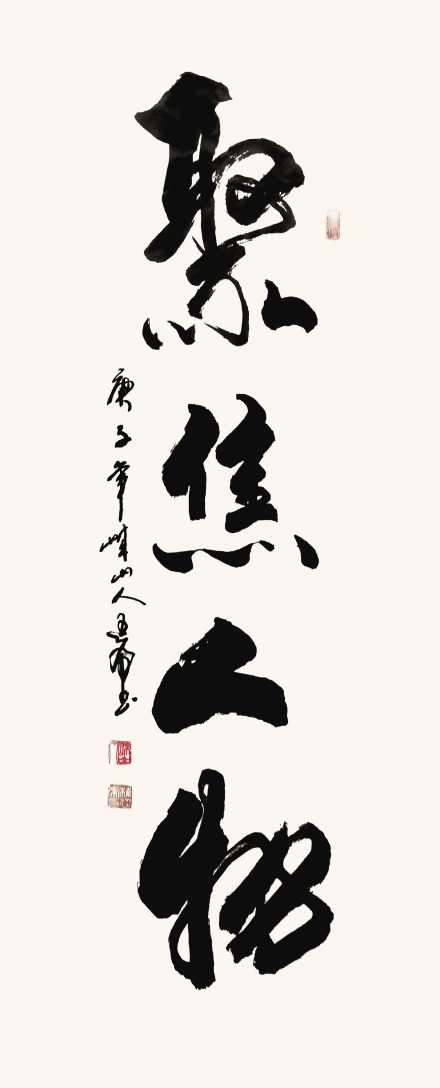 聚焦人物
庚子年峨山人